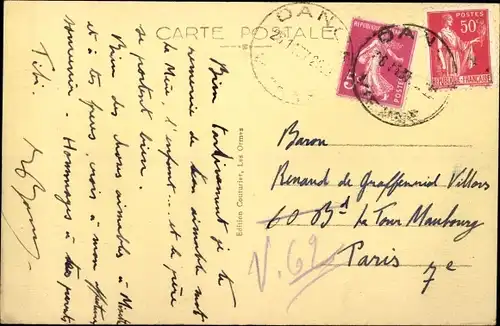 CARTE POSTALE
DAN
DAN
POSTES
50c
REPUBLIQUE FRANÇAISE
POSTES
Bien tardivement je te
remercie de ton aimable mot
La Mère, l'enfant... et le père
se portent bien.
Bien des choses aimables à
et à tes frères, crois à mon affectueux
souvenir. Hommages à tes parents
Titi.
Edition Couturier, Les Ormes
Baron
Renaud de Graffenried Villars
60 Bd La Tour Maubourg
Paris 7e
V. 69